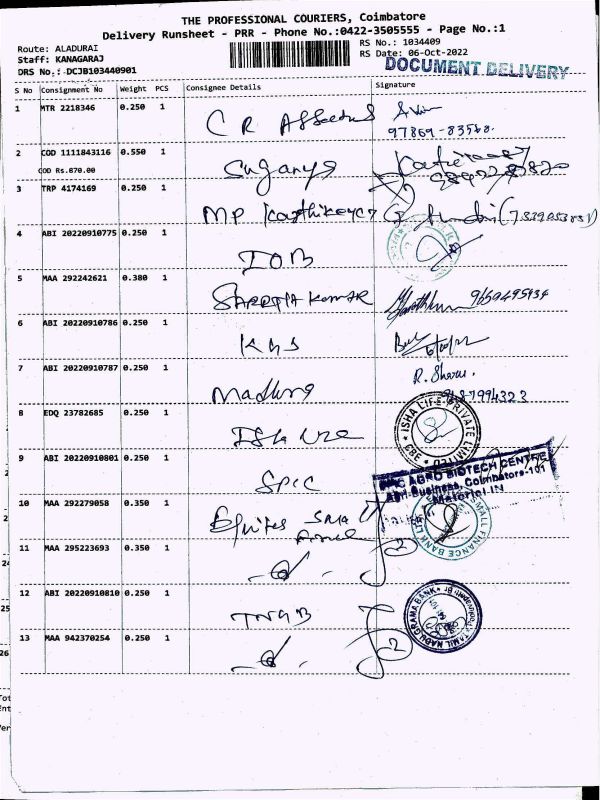 THE PROFESSIONAL COURIERS, Coimbatore
Delivery Runsheet - PRR - Phone No.:0422-3505555 - Page No.:1
Route: ALADURAI
RS No.: 1034409
Staff: KANAGARAJ
RS Date: 06-Oct-2022
DRS No.: DCJB103440901
DOCUMENT DELIVERY
S No Consignment No Weight PCS Consignee Details Signature
1 MTR 2218346 0.250 1 C R
97869-83568.
2 COD 1111843116 0.550 1 Suganya
COD Rs.870.00
3 TRP 4174169 0.250 1 MP Karthikeyan
4 ABI 20220910775 0.250 1 IOB
5 MAA 292242621 0.380 1 Kumar 9659495934
6 ABI 20220910786 0.250 1 KMS
7 ABI 20220910787 0.250 1 Madhura R.
9487994323
8 EDQ 23782685 0.250 1 Isha Life
ISHA LIFE PRIVATE LIMITED
CBE
9 ABI 20220910801 0.250 1 SPIC
SPIC AGRO BIOTECH CENTRE
Agri-Business, Coimbatore-101
10 MAA 292279058 0.350 1 Equitas Small
SMALL FINANCE BANK
11 MAA 295223693 0.350 1 -d-
12 ABI 20220910810 0.250 1 TNGB
TAMIL NADU GRAMA BANK
13 MAA 942370254 0.250 1 -d-